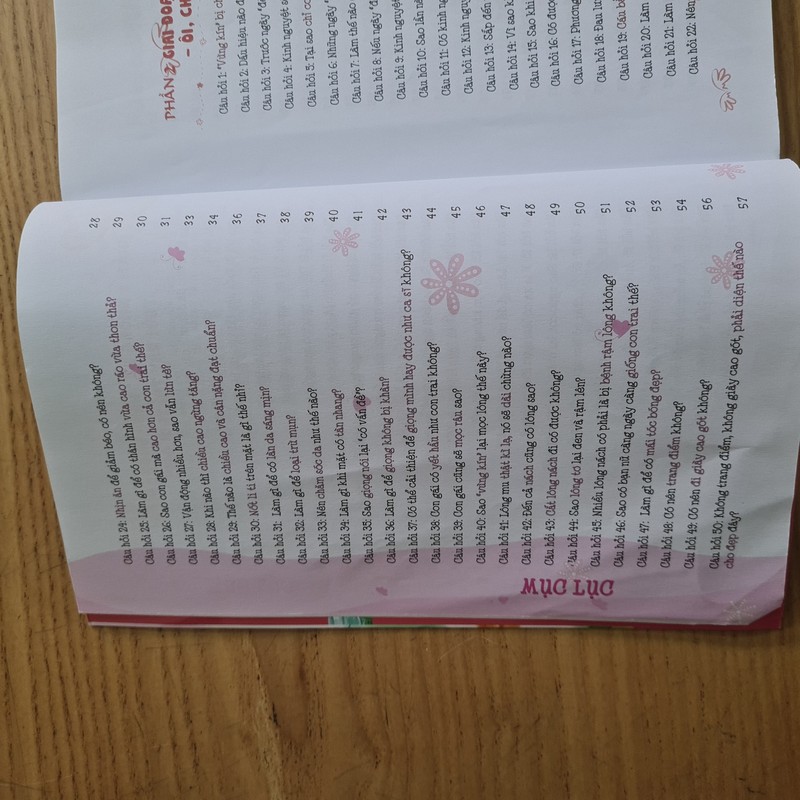 MỤC LỤC
Câu hỏi 24: Nhịn ăn để giảm béo, có nên không? 28
Câu hỏi 25: Làm gì để có thân hình vừa cao ráo vừa thon thả? 29
Câu hỏi 26: Sao con gái mà cao hơn cả con trai thế? 30
Câu hỏi 27: Vận động nhiều hơn, sao vẫn lùn tè? 31
Câu hỏi 28: Khi nào thì chiều cao ngừng tăng? 33
Câu hỏi 29: Thế nào là chiều cao và cân nặng đạt chuẩn? 34
Câu hỏi 30: Nốt li ti trên mặt là gì thế nhỉ? 36
Câu hỏi 31: Làm gì để có làn da sáng mịn? 37
Câu hỏi 32: Làm gì để loại trừ mụn? 38
Câu hỏi 33: Nên chăm sóc da như thế nào? 39
Câu hỏi 34: Làm gì khi mặt có tàn nhang? 40
Câu hỏi 35: Sao giọng nói lại "có vấn đề"? 41
Câu hỏi 36: Làm gì để giọng không bị khàn? 42
Câu hỏi 37: Có thể cải thiện để giọng mình hay được như ca sĩ không? 43
Câu hỏi 38: Con gái có yết hầu như con trai không? 44
Câu hỏi 39: Con gái cũng sẽ mọc râu sao? 45
Câu hỏi 40: Sao "vùng kín" lại mọc lông thế này? 46
Câu hỏi 41: Lông mu thật kì lạ, nó sẽ dài chừng nào? 47
Câu hỏi 42: Đến cả nách cũng có lông sao? 48
Câu hỏi 43: Cắt lông nách đi có được không? 49
Câu hỏi 44: Sao lông tơ lại đen và rậm lên? 50
Câu hỏi 45: Nhiều lông nách có phải là bị bệnh rậm lông không? 51
Câu hỏi 46: Sao có bạn nữ càng ngày càng giống con trai thế? 52
Câu hỏi 47: Làm gì để có mái tóc bóng đẹp? 53
Câu hỏi 48: Có nên trang điểm không? 54
Câu hỏi 49: Có nên đi giày cao gót không? 56
Câu hỏi 50: Không trang điểm, không giày cao gót, phải diện thế nào 57
cho đẹp đây?
PHẦN 2: GIAI ĐOẠ
- ÔI, CH
Câu hỏi 1: "Vùng kín" bị ch
Câu hỏi 2: Dấu hiệu nào đ
Câu hỏi 3: Trước ngày "đ
Câu hỏi 4: Kinh nguyệt s
Câu hỏi 5: Tại sao chỉ co
Câu hỏi 6: Những ngày "
Câu hỏi 7: Làm thế nào
Câu hỏi 8: Nếu ngày "đ
Câu hỏi 9: Kinh nguyệ
Câu hỏi 10: Sao lần nà
Câu hỏi 11: Có kinh ng
Câu hỏi 12: Kinh ngu
Câu hỏi 13: Sắp đến
Câu hỏi 14: Vì sao k
Câu hỏi 15: Sao khi
Câu hỏi 16: Có đượ
Câu hỏi 17: Phương
Câu hỏi 18: Đau lư
Câu hỏi 19: Cáu bẳ
Câu hỏi 20: Làm
Câu hỏi 21: Làm
Câu hỏi 22: Nên